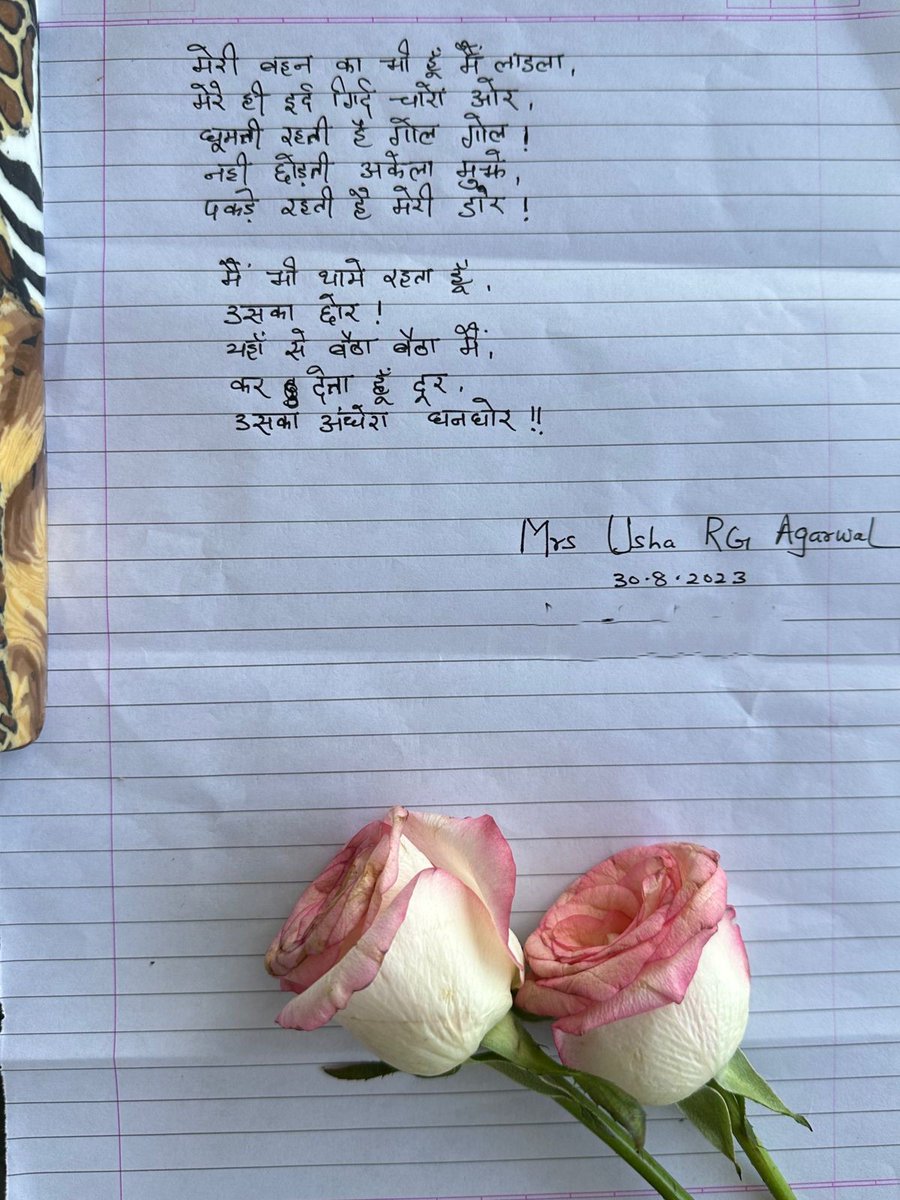 मेरी बहन का भी हूँ मैं लाडला,
मेरे ही इर्द गिर्द चारों ओर,
घूमती रहती है गोल गोल !
नही छोड़ती अकेला मुझे,
पकड़े रहती है मेरी डोर !
मैं भी थामे रहता हूँ,
उसका छोर !
यहाँ से बैठा बैठा मैं,
कर देता हूँ दूर,
उसका अंधेरा घनघोर !!
Mrs Usha RG Agarwal
30.8.2023